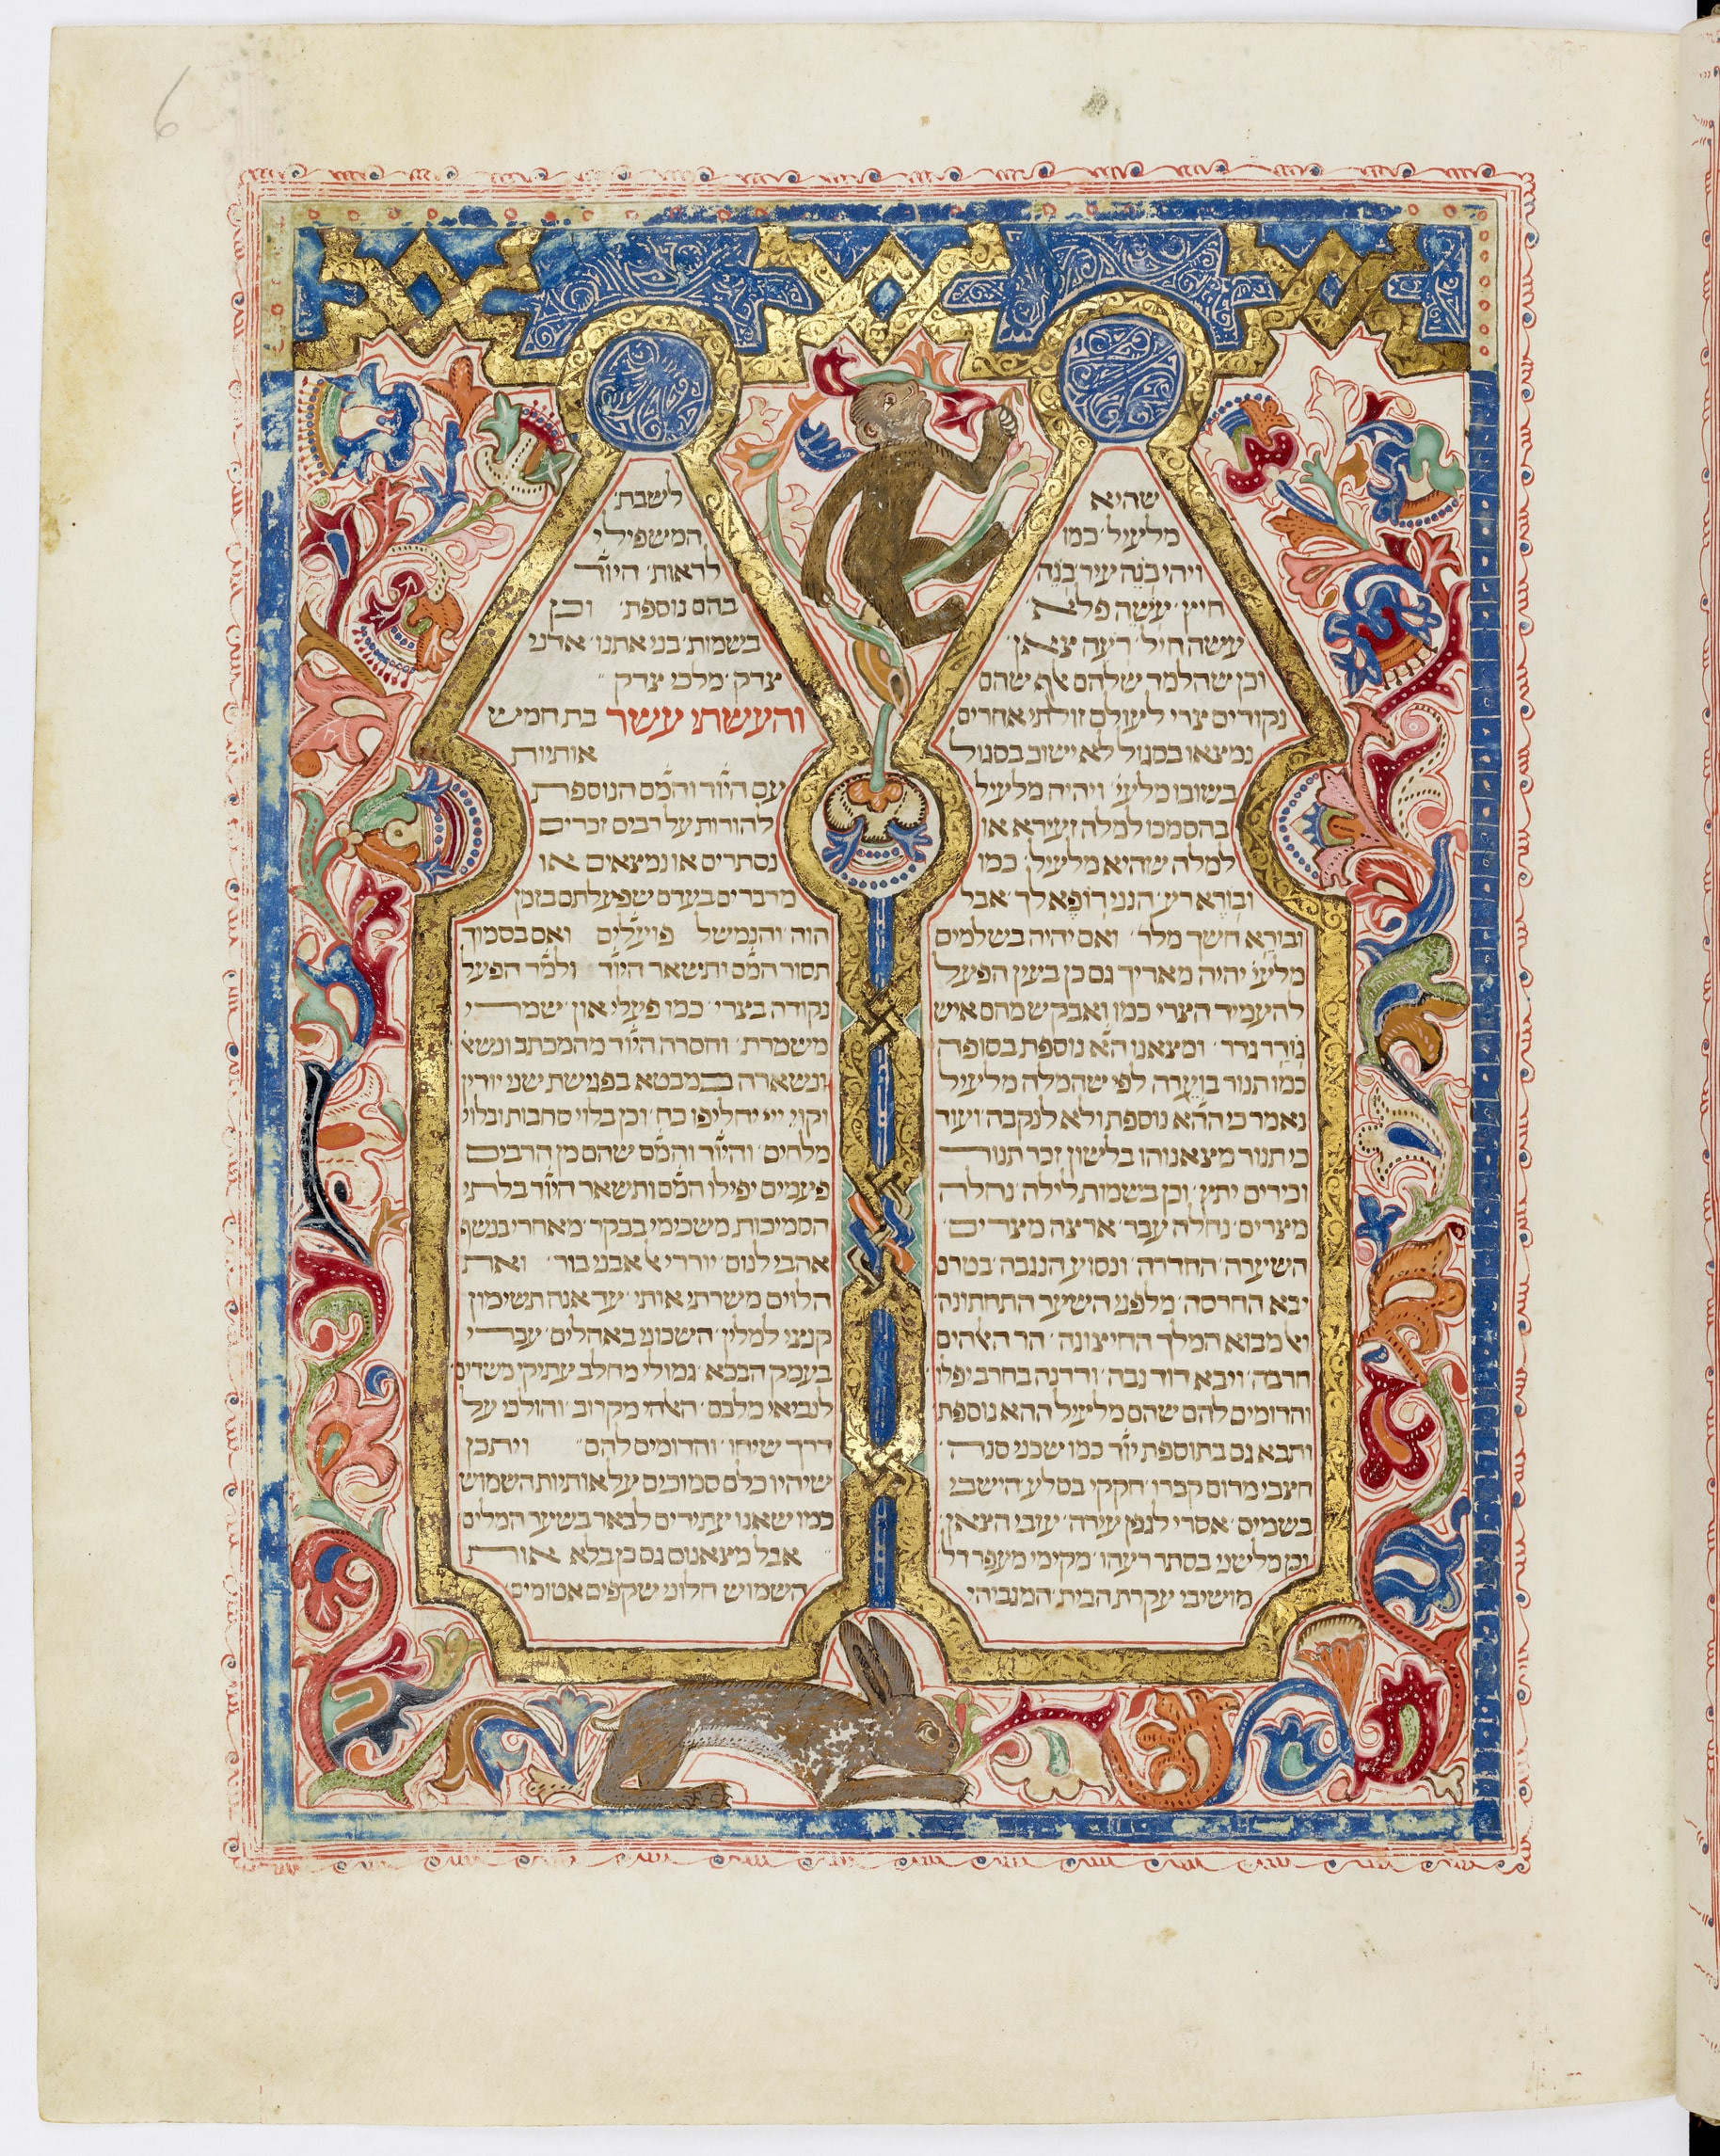 6
שהיא
מלעיל כמו
ויהי בנה עיר בנה
חיץ עשה פלא
עשה חיל רעה צאן
וכן שהלמד שלהם אף שהם
נקודים צרי לעולם זולתי אחרים
נמצאו בסגול לא ישוב בסגול
בשובו מלעי׳ ויהיה מלעיל
בהסמכו למלה זעירא או
למלה שהיא מלעיל כמו
ובורא רע הנני רופא לך אבל
ובורא חשך מלר׳ ואם יהיה בשלמים
מלעי׳ יהיה מאריך גם כן בעין הפעל
להעמיד הצרי כמו ואבקש מהם איש
גודר גדר ומצאנו הא נוספת בסופה
כמו תנור בוערה לפי שהמלה מלעיל
נאמר כי ההא נוספת ולא לנקבה ועוד
כי תנור מצאנוהו בלשון זכר תנור
וכירים יתץ וכן בשמות לילה נחלה
מצרים נחלה עבר ארצה מצרים
השערה החדרה ונסוע הנגבה בטרם
יבא החרסה מלפני השער התחתונה
ואל מבוא המלך החיצונה הר האלהים
חרבה ויבא דוד נבה ודדנה בחרב יפלו
והדומים להם שהם מלעיל ההא נוספת
ותבא גם בתוספת יוד כמו שכני סנה
חצבי מרום קברו חקקי בסלע הישבי
בשמים אסרי לגפן עירה עזבי הצאן
וכן מלשני בסתר רעהו מקימי מעפר דל
מושיבי עקרת הבית המגביהי
לשבת
המשפילי
לראות היוד
בהם נוספת וכן
בשמות בני אתנו אדני
צדק מלכי צדק
והעשתי עשר בת חמיש
אותיות
עם היוד והמם הנוספת
להורות על רבים זכרים
נסתרים או נמצאים או
מדברים בעדם שפעלתם בזמן
הוה והנמשל פועלים ואם בסמוך
תסור המם ותשאר היוד ולמד הפעל
נקודה בצרי כמו פעלי און שמרי
משמרת וחסרה היוד מהמכתב ונשא
ונשארה במבטא בפגישת שני יודין
וקוי ייי יחליפו כח וכן בלוי סחבות ובלוי
מלחים והיוד והמם שהם מן הרבים
פעמים יפילו המם ותשאר היוד בלתי
הסמיכות משכימי בבקר מאחרי בנשף
אהבי לנום יורדי אל אבני בור ואת
הלוים משרתי אותי עד אנה תשימון
קנצי למלין השכוני באהלים עברי
בעמק הבכא גמולי מחלב עתיקי משדים
לנביאי מלבם האלהי מקרוב והולכי על
דרך שיחו והדומים להם ויתכן
שיהיו כלם סמוכים על אותיות השמוש
כמו שאנו עתידים לבאר בשער המלים
אבל מצאנום גם כן בלא אות
השמוש חלוני שקפים אטומים